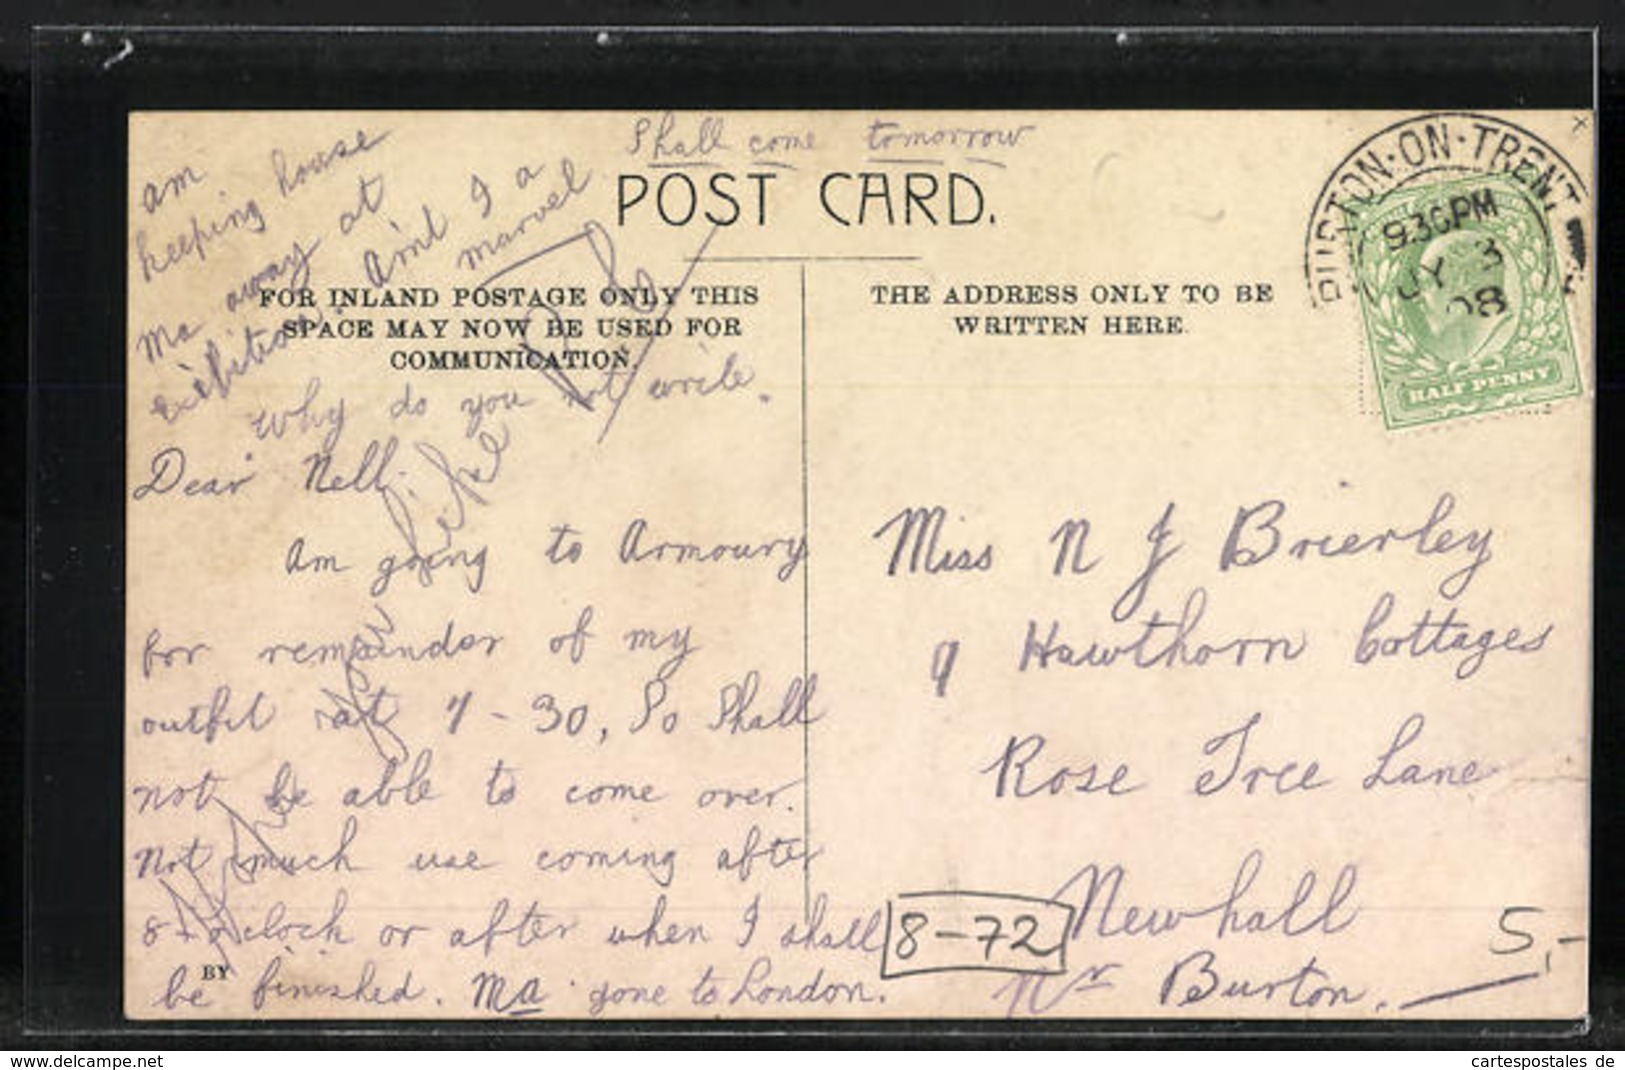 Shall come tomorrow
POST CARD.
am
keeping house
Ma away at
Exibition. Aint I a
marvel
FOR INLAND POSTAGE ONLY THIS
SPACE MAY NOW BE USED FOR
COMMUNICATION.
Why do you not write.
Dear Nell
Am going to Armoury
for remainder of my
outfit at 7-30, So Shall
not be able to come over.
Not much use coming after
8 o'clock or after when I shall
be finished. Ma gone to London.
BY
THE ADDRESS ONLY TO BE
WRITTEN HERE.
BURTON-ON-TRENT
9.30PM
JY 3
08
HALFPENNY
Miss N J Brierley
9 Hawthorn Cottages
Rose Tree Lane
Newhall
Nr Burton.
8-72
5,-
www.delcampe.net
cartespostales de